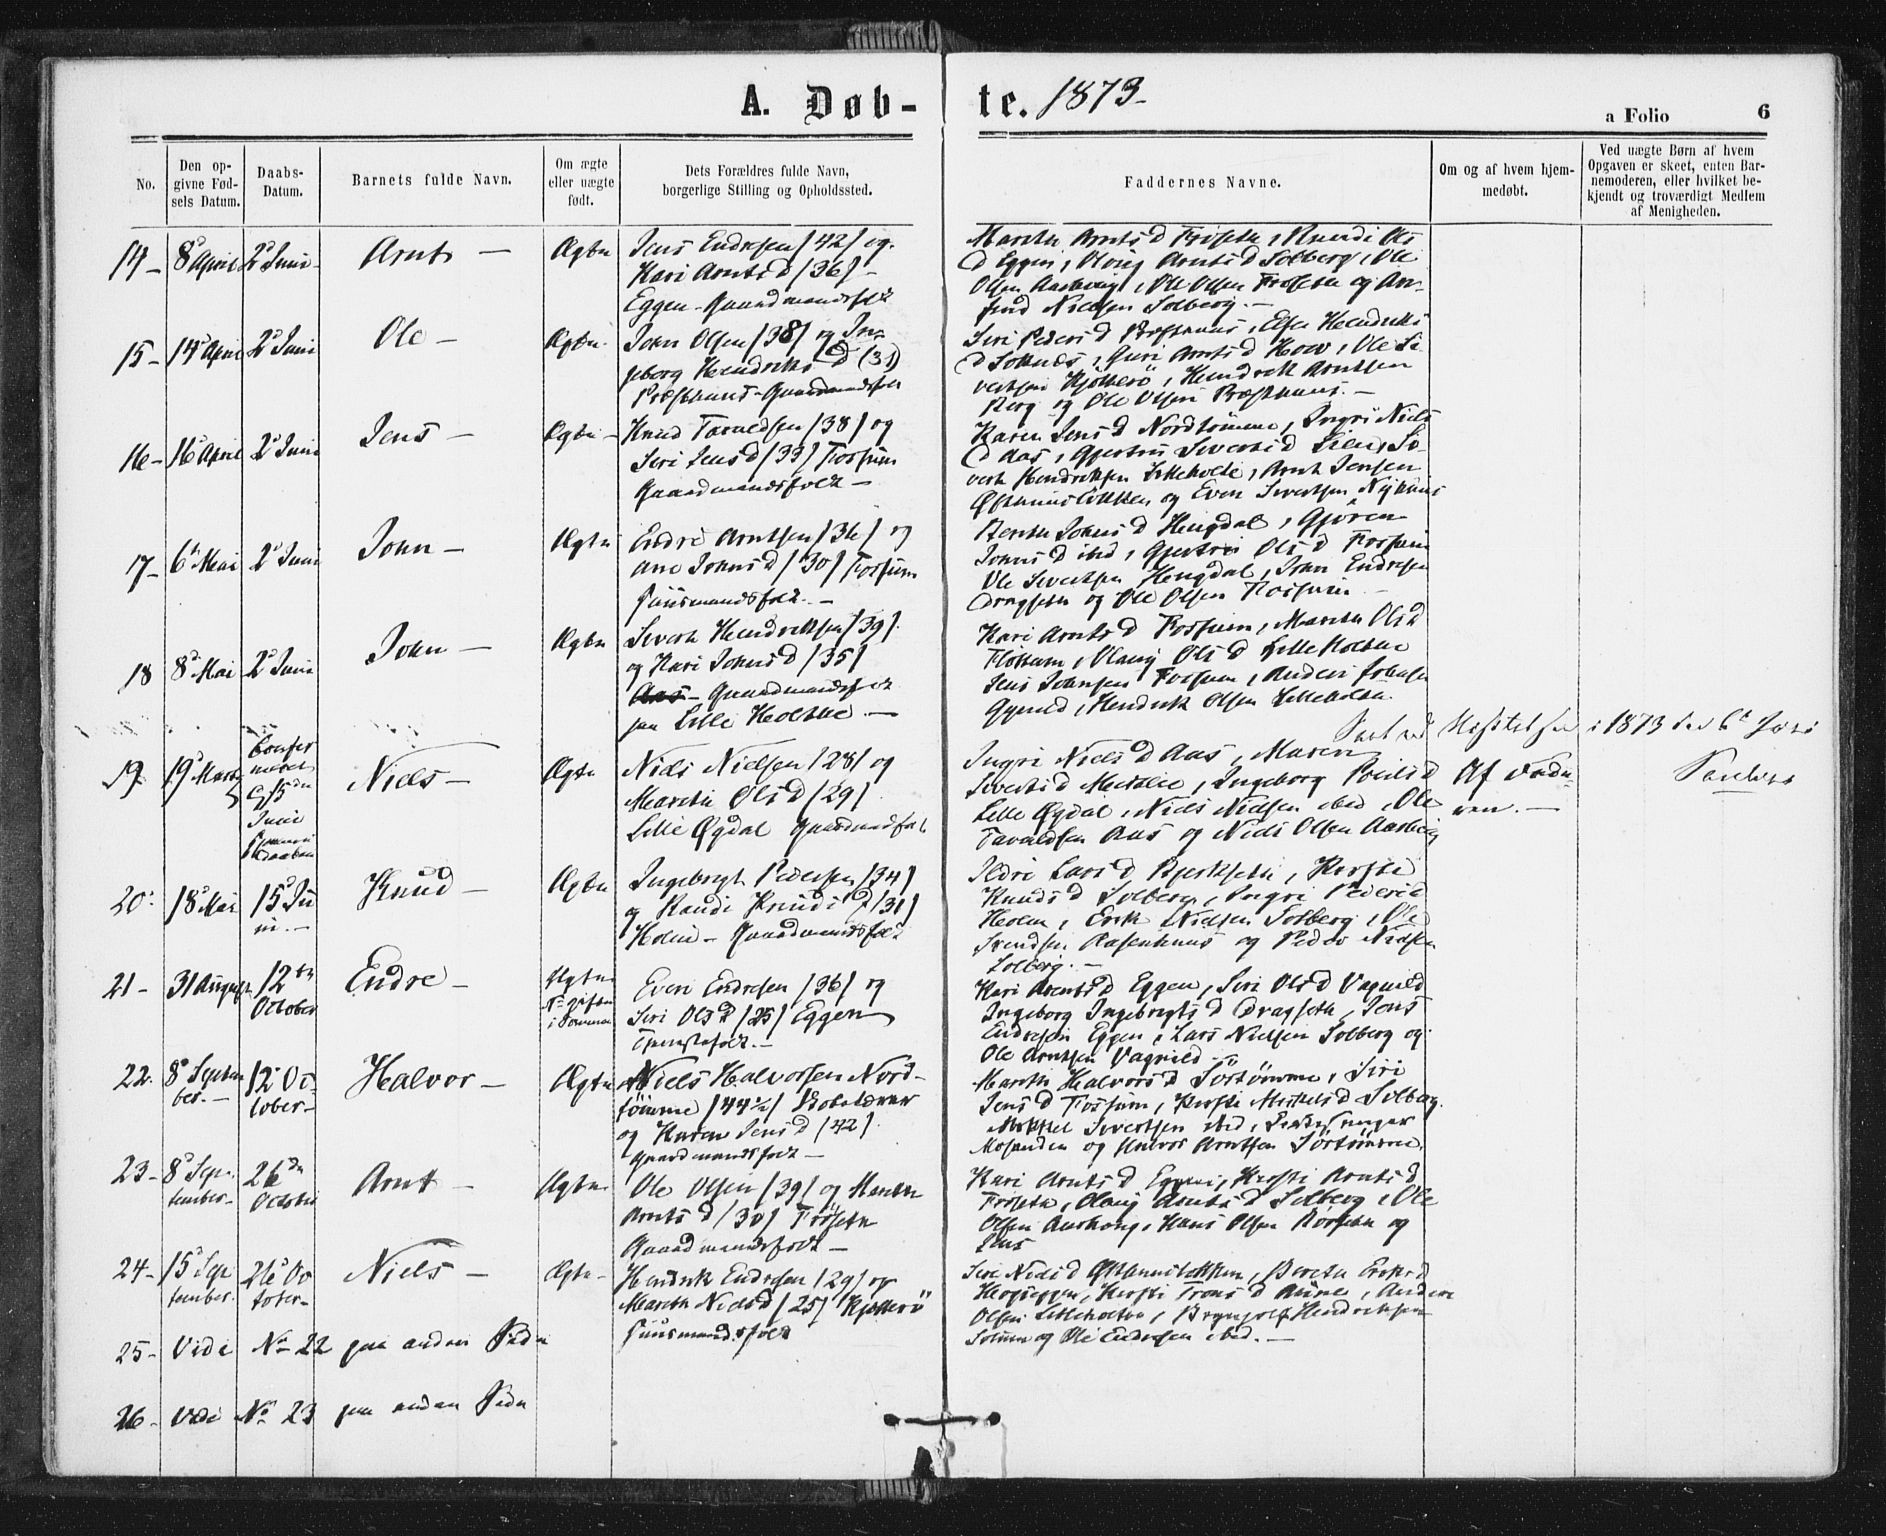 A. Døb-
te. 1873-
a Folio 6
No.
Den op-
givne Fød-
sels Datum.
Daabs-
Datum.
Barnets fulde Navn.
Om ægte
eller uægte
født.
Dets Forældres fulde Navn,
borgerlige Stilling og Opholdssted.
Faddernes Navne.
Om og af hvem hjem-
medøbt.
Ved uægte Børn af hvem
Opgaven er skeet, enten Bar-
nemoderen, eller hvilket be-
kjendt og troværdigt Medlem
af Menigheden.
14 - 8 April 2 Juni - Arnt - Ægte
Jens Endresen (42) og
Kari Arntsd (36) -
Eggen - Gaardmandsfolk
Marith Arntsd Frøseth,
d Eggen, Olaug Arntsd Solberg, Ole
Olsen Aashaug, Ole Olsen Frøseth og Arn-
Nielsen Solberg. -
15 - 14 April 2 Juni Ole - Ægte
John Olsen (38) og In-
geborg Hendriksd (31)
Præsthuus - Gaardmandsfolk
Siri Pedersd Præsthuus, Hendriks
d Soknæs, Guri Arntsd Hov, Ole Si-
vertsen Kjøtterö, Hendrik Arntsen
Berg og Ole Olsen Præsthuus. -
16 - 16 April 2 Juni Jens - Ægte -
Knud Tarvaldsen (38) og
Siri Jensd (33) Fossum
Gaardmandsfolk -
Karen Jensd Nordtömme, Ingri Niels
d Aas, Gjertru Sivertsd Lien, Si-
vert Hendriksen Lilleholte, Arnt Jensen
og Even Sivertsen Nyhuus
17 - 6 Mai 2 Juni John - Ægte
Endre Arntsen (36) og
Ane Johnsd (30) Fossum
Huusmandsfolk. -
Berith Johnsd Hengdal, Gjören
Johnsd ibid, Gjertru Olsd Fossum
Ole Sivertsen Hengdal, John Endresen
Dragseth og Ole Olsen Fossum -
18 8 Mai 2 Juni John - Ægte
Sivert Hendriksen (39)
og Kari Johnsd (35)
Aas - Gaardmandsfolk
paa Lille Holthe -
Kari Arntsd Fossum, Marith Olsd
Flottum, Olaug Olsd Lilleholthe
Jens Johnsen Fossum, Anders Johnsen
Hendrik Olsen Lilleholthe.
i 1873 den 6
19 19 Marts
15
Juni
Niels - Ægte
Niels Nielsen (28) og
Marith Olsd (29)
Lille Øgdal Gaardmandfolk
Ingri Nielsd Aas, Maren
Sivertsd, Ingeborg
Lille Øgdal, Niels Nielsen ibid, Ole
Tarvaldsen Aas og Niels Olsen
Af Fade-
ren. -
20 18 Mai 15 Ju
ni. -
Knud - Ægte
Ingebrigt Pedersen (34)
og Randi Knudsd (31)
Holm - Gaardmandsfolk
Ildri Larsd Bjerkseth, Kirsti
Knudsd Solberg, Ingri Pedersd
Holm, Erik Nielsen Solberg, Ole
Svendsen Rosenhuus og Peder Nielsen
Solberg. -
21 - 31 August 12te
October
Endre - Ægte
Even Endresen (36) og
Siri Olsd (25) Eggen
Tjenestefolk. -
Kari Arntsd Eggen, Siri Olsd Vagnild
Ingeborg Ingebrigtsd Dragseth, Jens
Endresen Eggen, Lars Nielsen Solberg og
Ole Arntsen Vagnild -
22. 8 Septem
ber. -
12 Oc-
tober -
Halvor - Ægte
Niels Halvorsen Nord-
tömme (44½) Skolelærer
og Karen Jensd (42)
Gaardmandsfolk -
Marith Halvorsd Sörtömme, Siri
Jensd Fossum, Kirsti Mikkelsd Solberg
Mikkel Sivertsen ibid,
Mosanden og Halvor Arntsen Sörtömme.
23 - 8 Sep-
tember -
26de
October
Arnt - Ægte
Ole Olsen (39) og Marith
Arntsd (30) Fröseth
Gaardmandsfolk -
Kari Arntsd Eggen, Kirsti Arntsd
Fröseth, Olaug Arntsd Solberg, Ole
Olsen Aashaug, Hans Olsen Rörseth og
Jens
24 - 15 Sep
tember.
26 Oc
tober -
Niels - Ægte -
Hendrik Endresen (29) og
Marith Nielsd (25) Kjøtterö
Huusmandsfolk
Siri Nielsd, Berith Eriksd
Haugseggen, Kirsti Tronsd, Anders
Olsen Lilleholthe, Brynjolf Hendriksen
Solum og Ole Endresen ibid. -
25 - Vide No 22 paa anden Side
26 - Vide No 23 paa anden Side